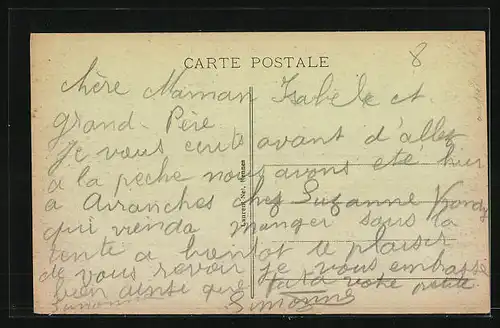 8
CARTE POSTALE
chère Maman Isabele et
grand-Père
Je vous ecris avant d'aller
a la peche nous avons eté hier
a Avranches chez Suzanne
qui vienda manger sous la
tente a bientot le plaisir
de vous revoir je vous embrasse
bien ainsi que votre petite
Simonne
Laurent-Nel, Rennes